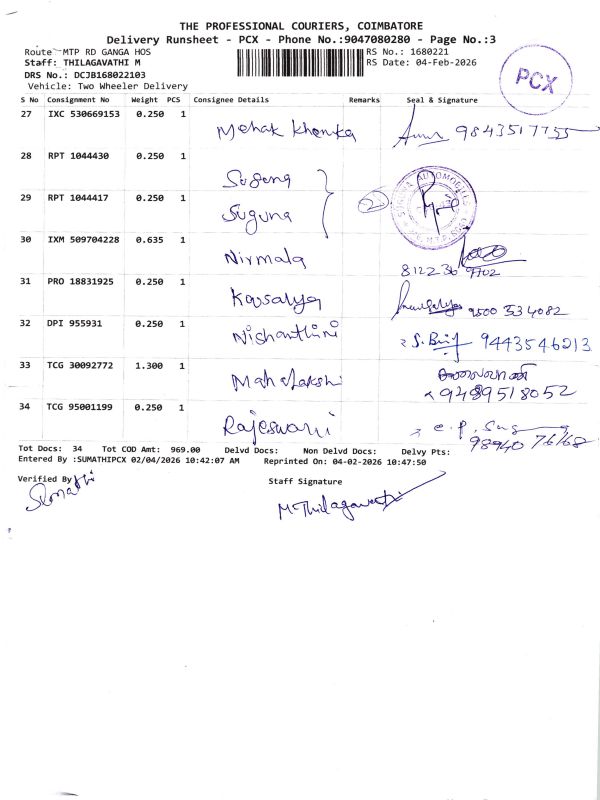 THE PROFESSIONAL COURIERS, COIMBATORE
Delivery Runsheet - PCX - Phone No.:9047080280 - Page No.:3
Route MTP RD GANGA HOS
RS No.: 1680221
Staff: THILAGAVATHI M
RS Date: 04-Feb-2026
DRS No.: DCJB168022103
Vehicle: Two Wheeler Delivery
PCX
S No Consignment No Weight PCS Consignee Details Remarks Seal & Signature
27 IXC 530669153 0.250 1 Mehak Khemka 9843517755
28 RPT 1044430 0.250 1 Suguna
29 RPT 1044417 0.250 1 Suguna 2
30 IXM 509704228 0.635 1 Nirmala
81223 9702
31 PRO 18831925 0.250 1 Kausalya 9500 534082
32 DPI 955931 0.250 1 Nishanthini 9443546213
33 TCG 30092772 1.300 1 Mahalakshi
9489518052
34 TCG 95001199 0.250 1 Rajeswari
98940 76168
Tot Docs: 34 Tot COD Amt: 969.00 Delvd Docs: Non Delvd Docs: Delvy Pts:
Entered By :SUMATHIPCX 02/04/2026 10:42:07 AM Reprinted On: 04-02-2026 10:47:50
Verified By Staff Signature
Sumathi
M Thilagavathi